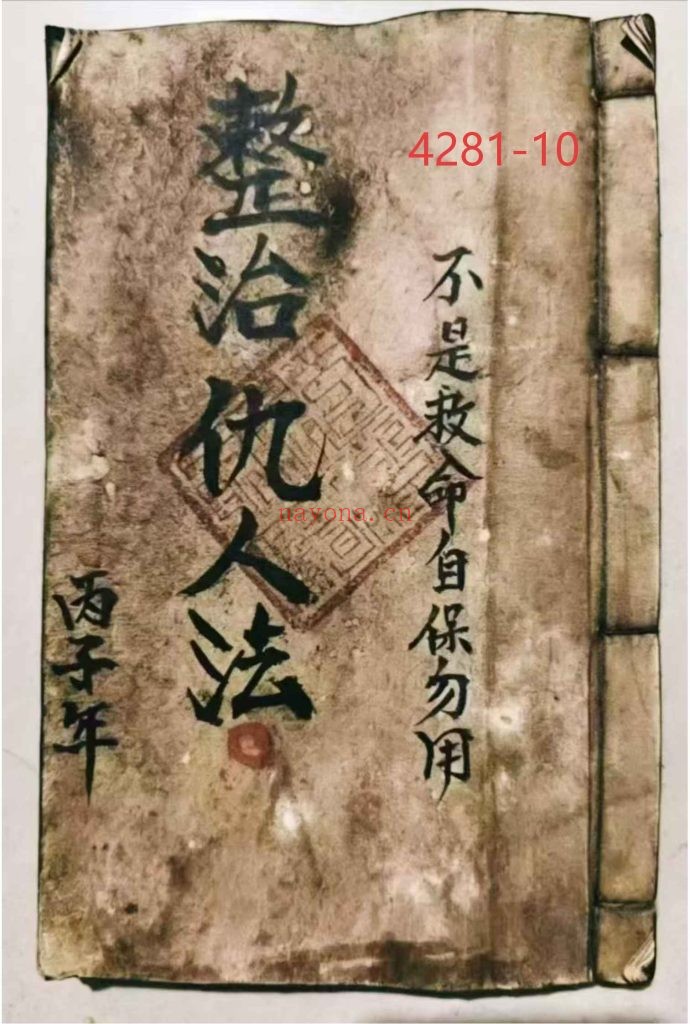 4281-10
不是救命自保勿用
整治仇人法
丙子年
uaxona.cn